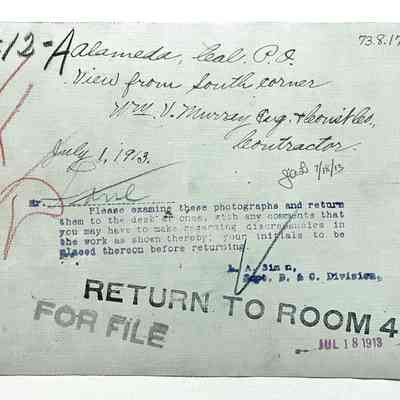 12-A Alameda, Cal. P.O. 73.8.17
View from South corner
Wm. V. Murray Eng. & Const Co,
Contractor
July 1, 1913. 7/15/13
Mr.
Please examine these photographs and return
them to the desk at once, with any comments that
you may have to make regarding discrepancies in
the work as shown thereby; your initials to be
placed thereon before returning.
Supt. B. & C. Division.
RETURN TO ROOM 4
FOR FILE
JUL 18 1913